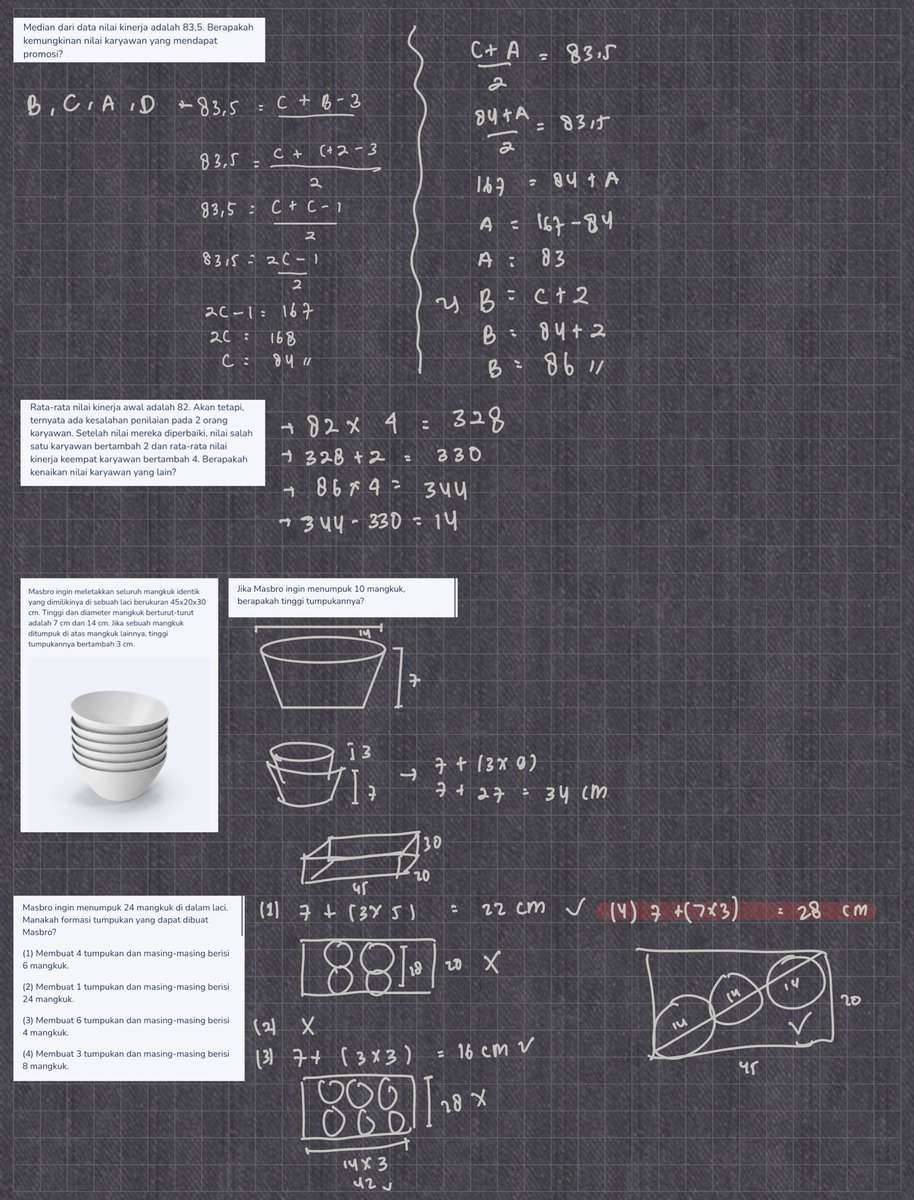 Median dari data nilai kinerja adalah 83,5. Berapakah
kemungkinan nilai karyawan yang mendapat
promosi?
B, C, A, D → 83,5 = C + B - 3
83,5 = C + C+2 - 3
2
83,5 = C + C - 1
2
83,5 = 2C - 1
2
2C - 1 = 167
2C = 168
C = 84 //
C + A = 83,5
2
84 + A = 83,5
2
167 = 84 + A
A = 167 - 84
A = 83
B = C + 2
B = 84 + 2
B = 86 //
Rata-rata nilai kinerja awal adalah 82. Akan tetapi,
ternyata ada kesalahan penilaian pada 2 orang
karyawan. Setelah nilai mereka diperbaiki, nilai salah
satu karyawan bertambah 2 dan rata-rata nilai
kinerja keempat karyawan bertambah 4. Berapakah
kenaikan nilai karyawan yang lain?
→ 82 x 4 = 328
→ 328 + 2 = 330
→ 86 x 4 = 344
→ 344 - 330 = 14
Masbro ingin meletakkan seluruh mangkuk identik
yang dimilikinya di sebuah laci berukuran 45x20x30
cm. Tinggi dan diameter mangkuk berturut-turut
adalah 7 cm dan 14 cm. Jika sebuah mangkuk
ditumpuk di atas mangkuk lainnya, tinggi
tumpukannya bertambah 3 cm.
Jika Masbro ingin menumpuk 10 mangkuk,
berapakah tinggi tumpukannya?
14
7
3
7
→ 7 + (3 x 9)
7 + 27 = 34 cm
30
20
45
Masbro ingin menumpuk 24 mangkuk di dalam laci.
Manakah formasi tumpukan yang dapat dibuat
Masbro?
(1) Membuat 4 tumpukan dan masing-masing berisi
6 mangkuk.
(2) Membuat 1 tumpukan dan masing-masing berisi
24 mangkuk.
(3) Membuat 6 tumpukan dan masing-masing berisi
4 mangkuk.
(4) Membuat 3 tumpukan dan masing-masing berisi
8 mangkuk.
(1) 7 + (3 x 5) = 22 cm ✓
20 X
(2) X
(3) 7 + (3 x 3) = 16 cm ✓
28 X
14 x 3
42 ✓
(4) 7 + (7x3) = 28 cm
14
14
14
✓
20
45